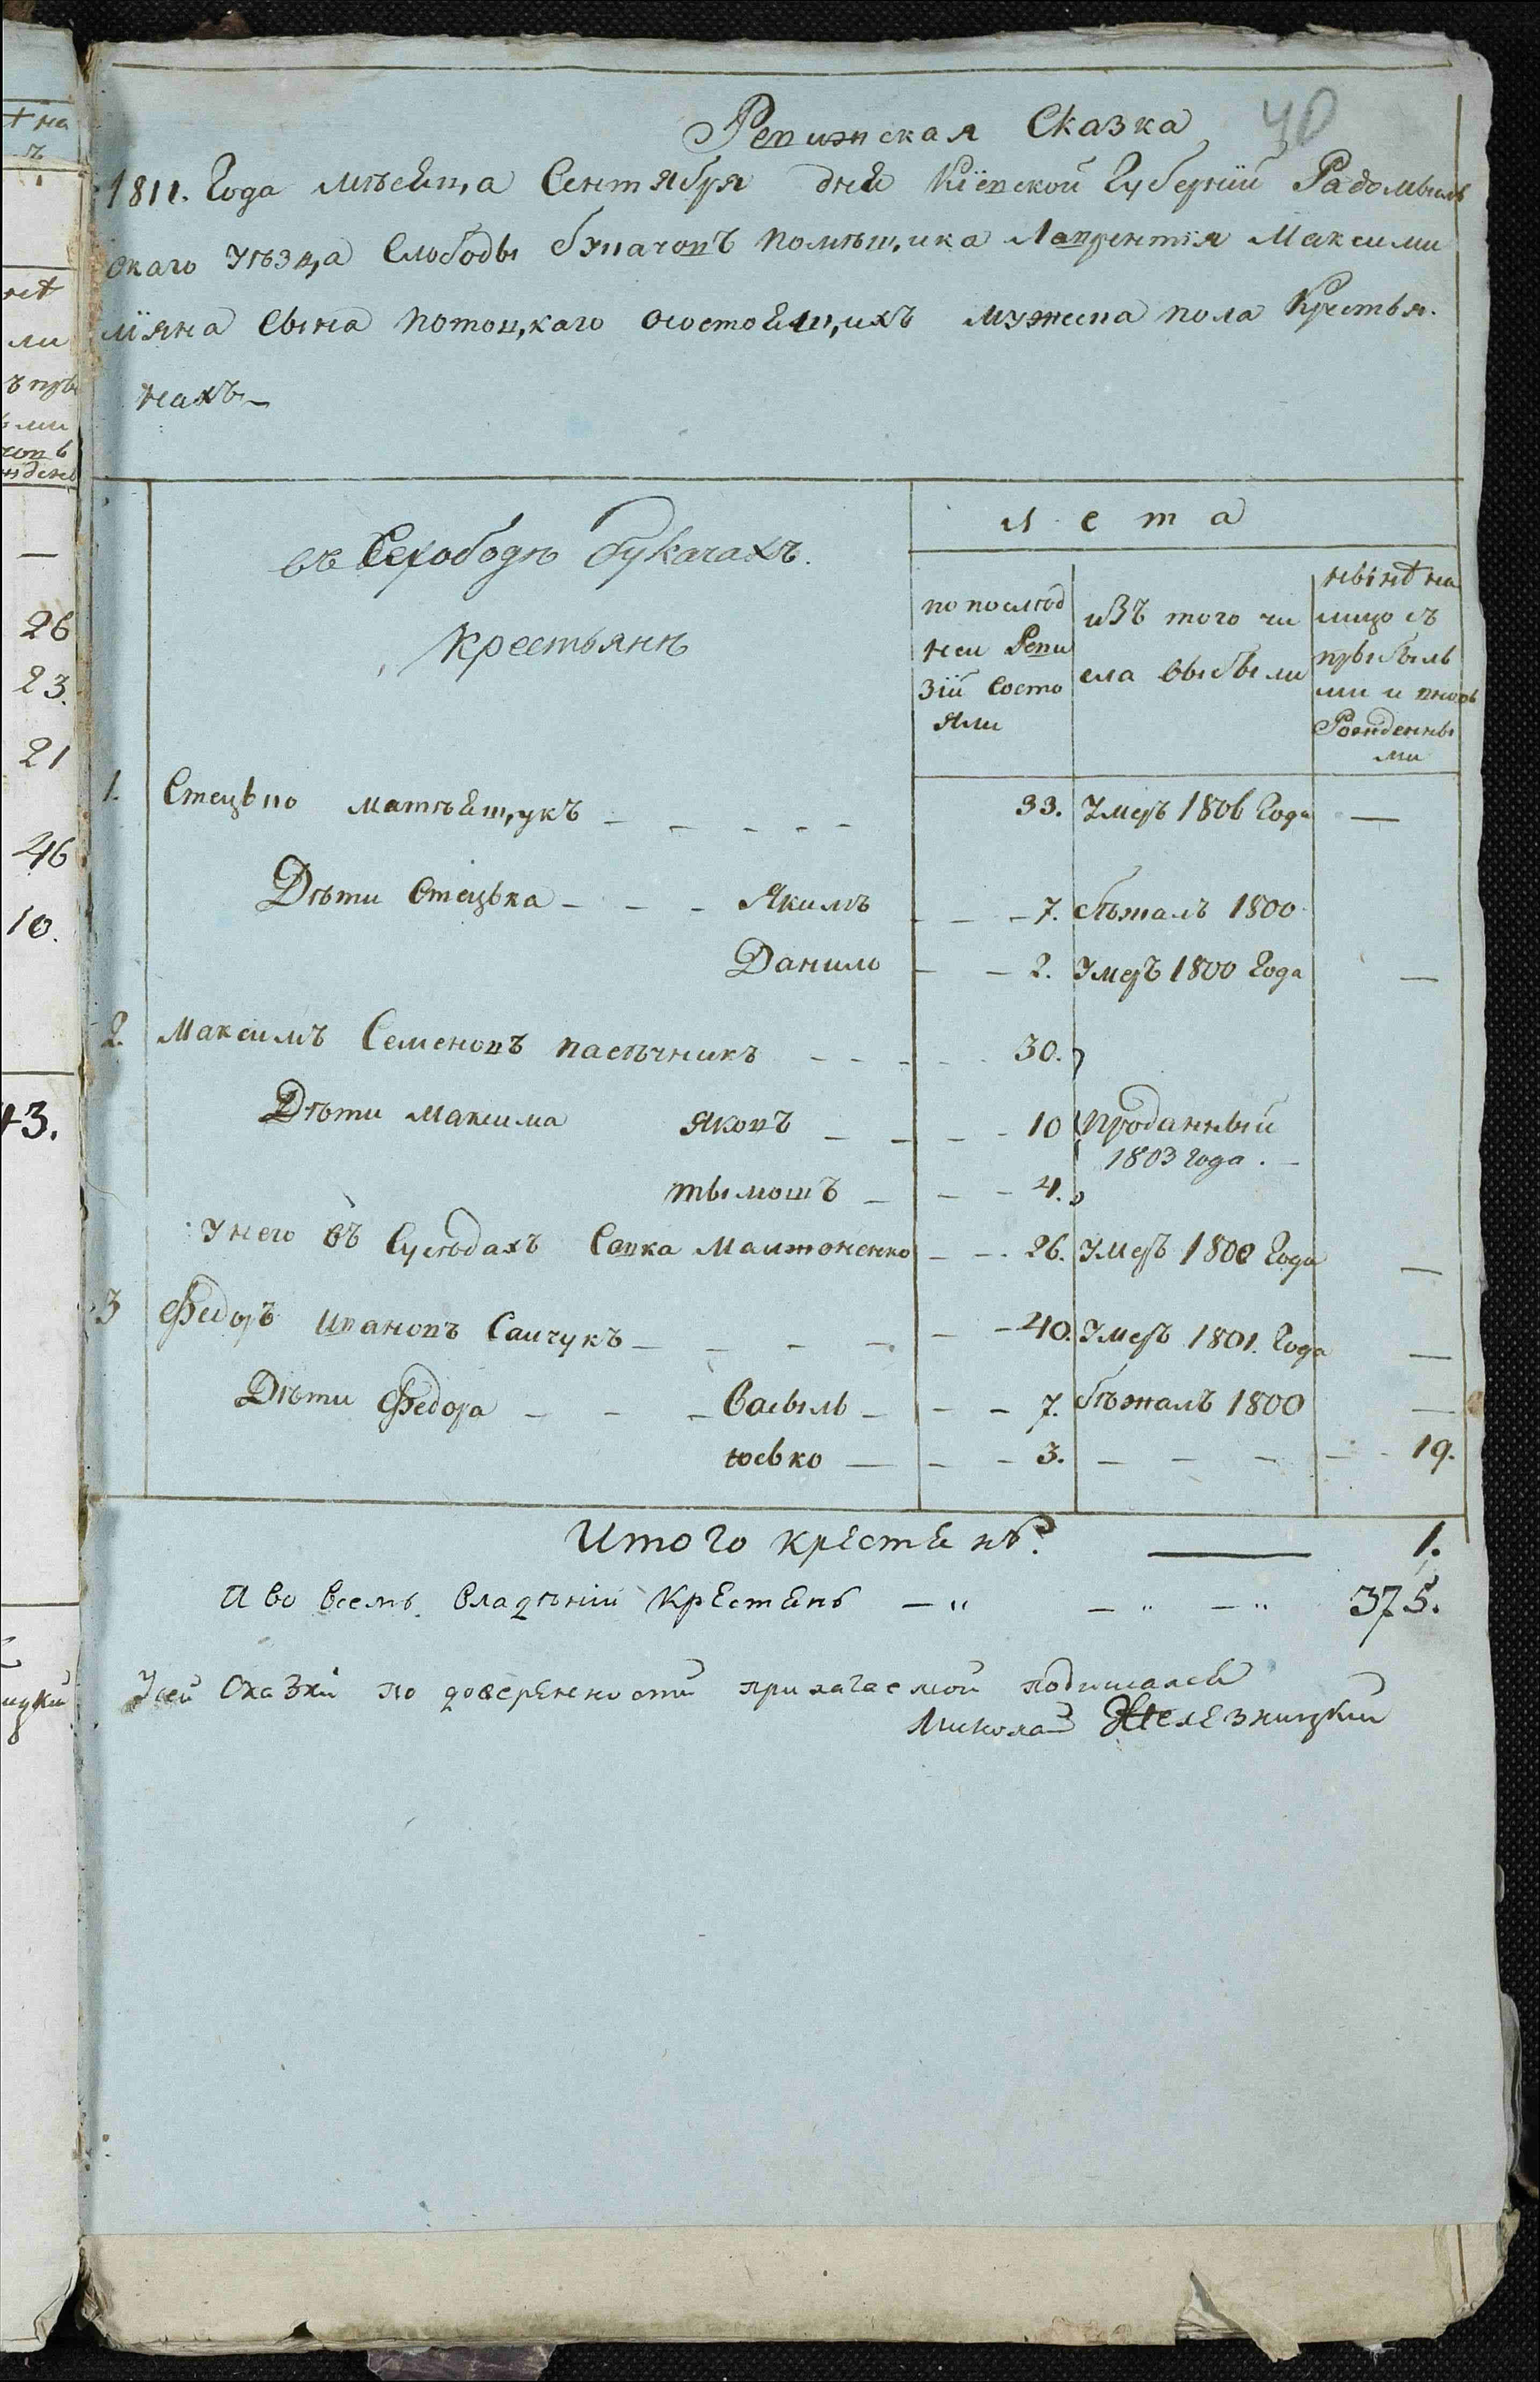 Ревижская Сказка
40
1811. Года мѣсяца Сентября дня Кіевской Губерніи Радомысль
скаго уѣзда Слободы букачовъ помѣщика Лаврентія Максими
ліяна сына потоцкаго осостоящихъ мужеска пола Крестья.
нахъ
въ Слободѣ букачахъ.
крестьянъ
лета
по послѣд
ней Реви
зіи состо
яли
изъ того чи
сла выбыли
нынѣ на
лицо съ
прыбылы
ми и вновь
Рожденны
ми
1. Стецько матѣящукъ 33. Умеръ 1806 Года —
Дѣти Стецька Якимъ 7. бѣжалъ 1800
Данило 2. Умеръ 1800 Года —
2. Максимъ Семеновъ пасѣчникъ 30.
Дѣти Максима Яковъ 10 проданный
1803 года.
тымошъ 4.
у него въ Сусѣдахъ Савка 26. Умеръ 1800 Года —
3 Федоръ Ивановъ Савчукъ 40. Умеръ 1801. Года —
Дѣти Федора Васыль 7. бѣжалъ 1800 —
юсько 3. 19.
Итого крестянъ 1.
И во всемъ владѣніи крестянъ 375.
У сей Сказки по доверенности прилагаемой подписался
Миколай Железницкий
на
26
23.
21
46
10.
43.